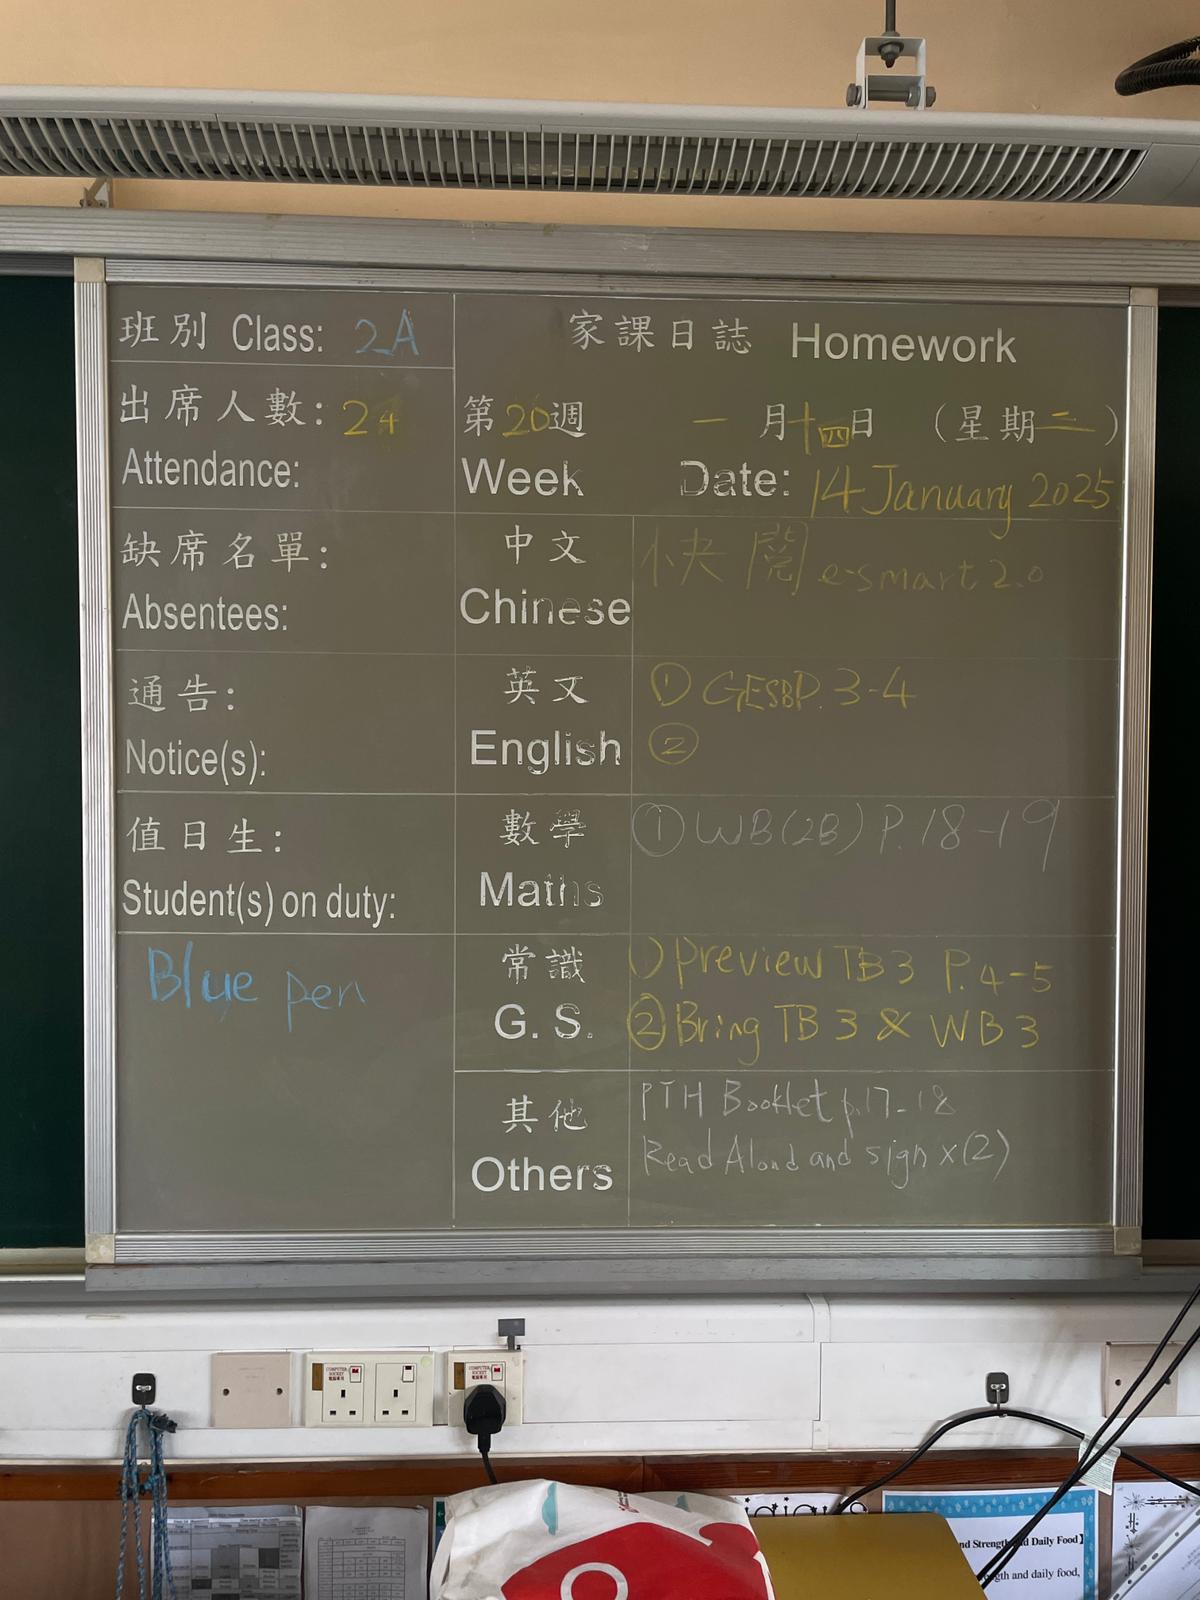 班別 Class: 2A
家課日誌 Homework
出席人數: 24
Attendance:
第20週 一月十四日 (星期二)
Week Date: 14 January 2025
缺席名單:
Absentees:
中文
Chinese
快閱 e-smart 2.0
通告:
Notice(s):
英文
English
① GESBP. 3-4
②
值日生:
Student(s) on duty:
數學
Maths
① WB(2B) P.18-19
Blue pen
常識
G. S.
1) preview TB3 P.4-5
② Bring TB 3 & WB 3
其他
Others
PTH Booklet p.17-18
Read Aloud and sign x(2)
COMPUTER SOCKET
COMPUTER SOCKET
nd Strength and Daily Food】
ngth and daily food,